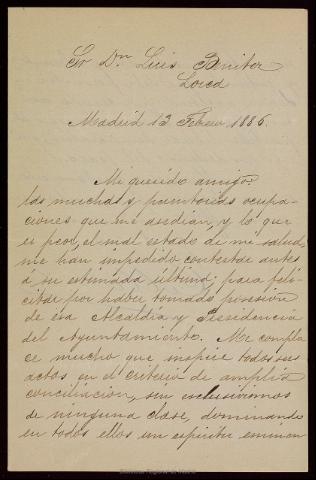 Sr Dn Luis Benitez
Lorca
Madrid 13 Febrero 1886.
Mi querido amigo:
las muchas y perentorias ocupa-
ciones que me asedian, y lo que
es peor, el mal estado de mi salud,
me han impedido contestar antes
á su estimada última; para feli-
citarle por haber tomado posesión
de esa Alcaldía y Presidencia
del Ayuntamiento. Me compla
ce mucho que inspire todos sus
actos en el criterio de amplia
conciliación, sin esclusivismos
de ninguna clase, dominando
en todos ellos un espíritu eminen